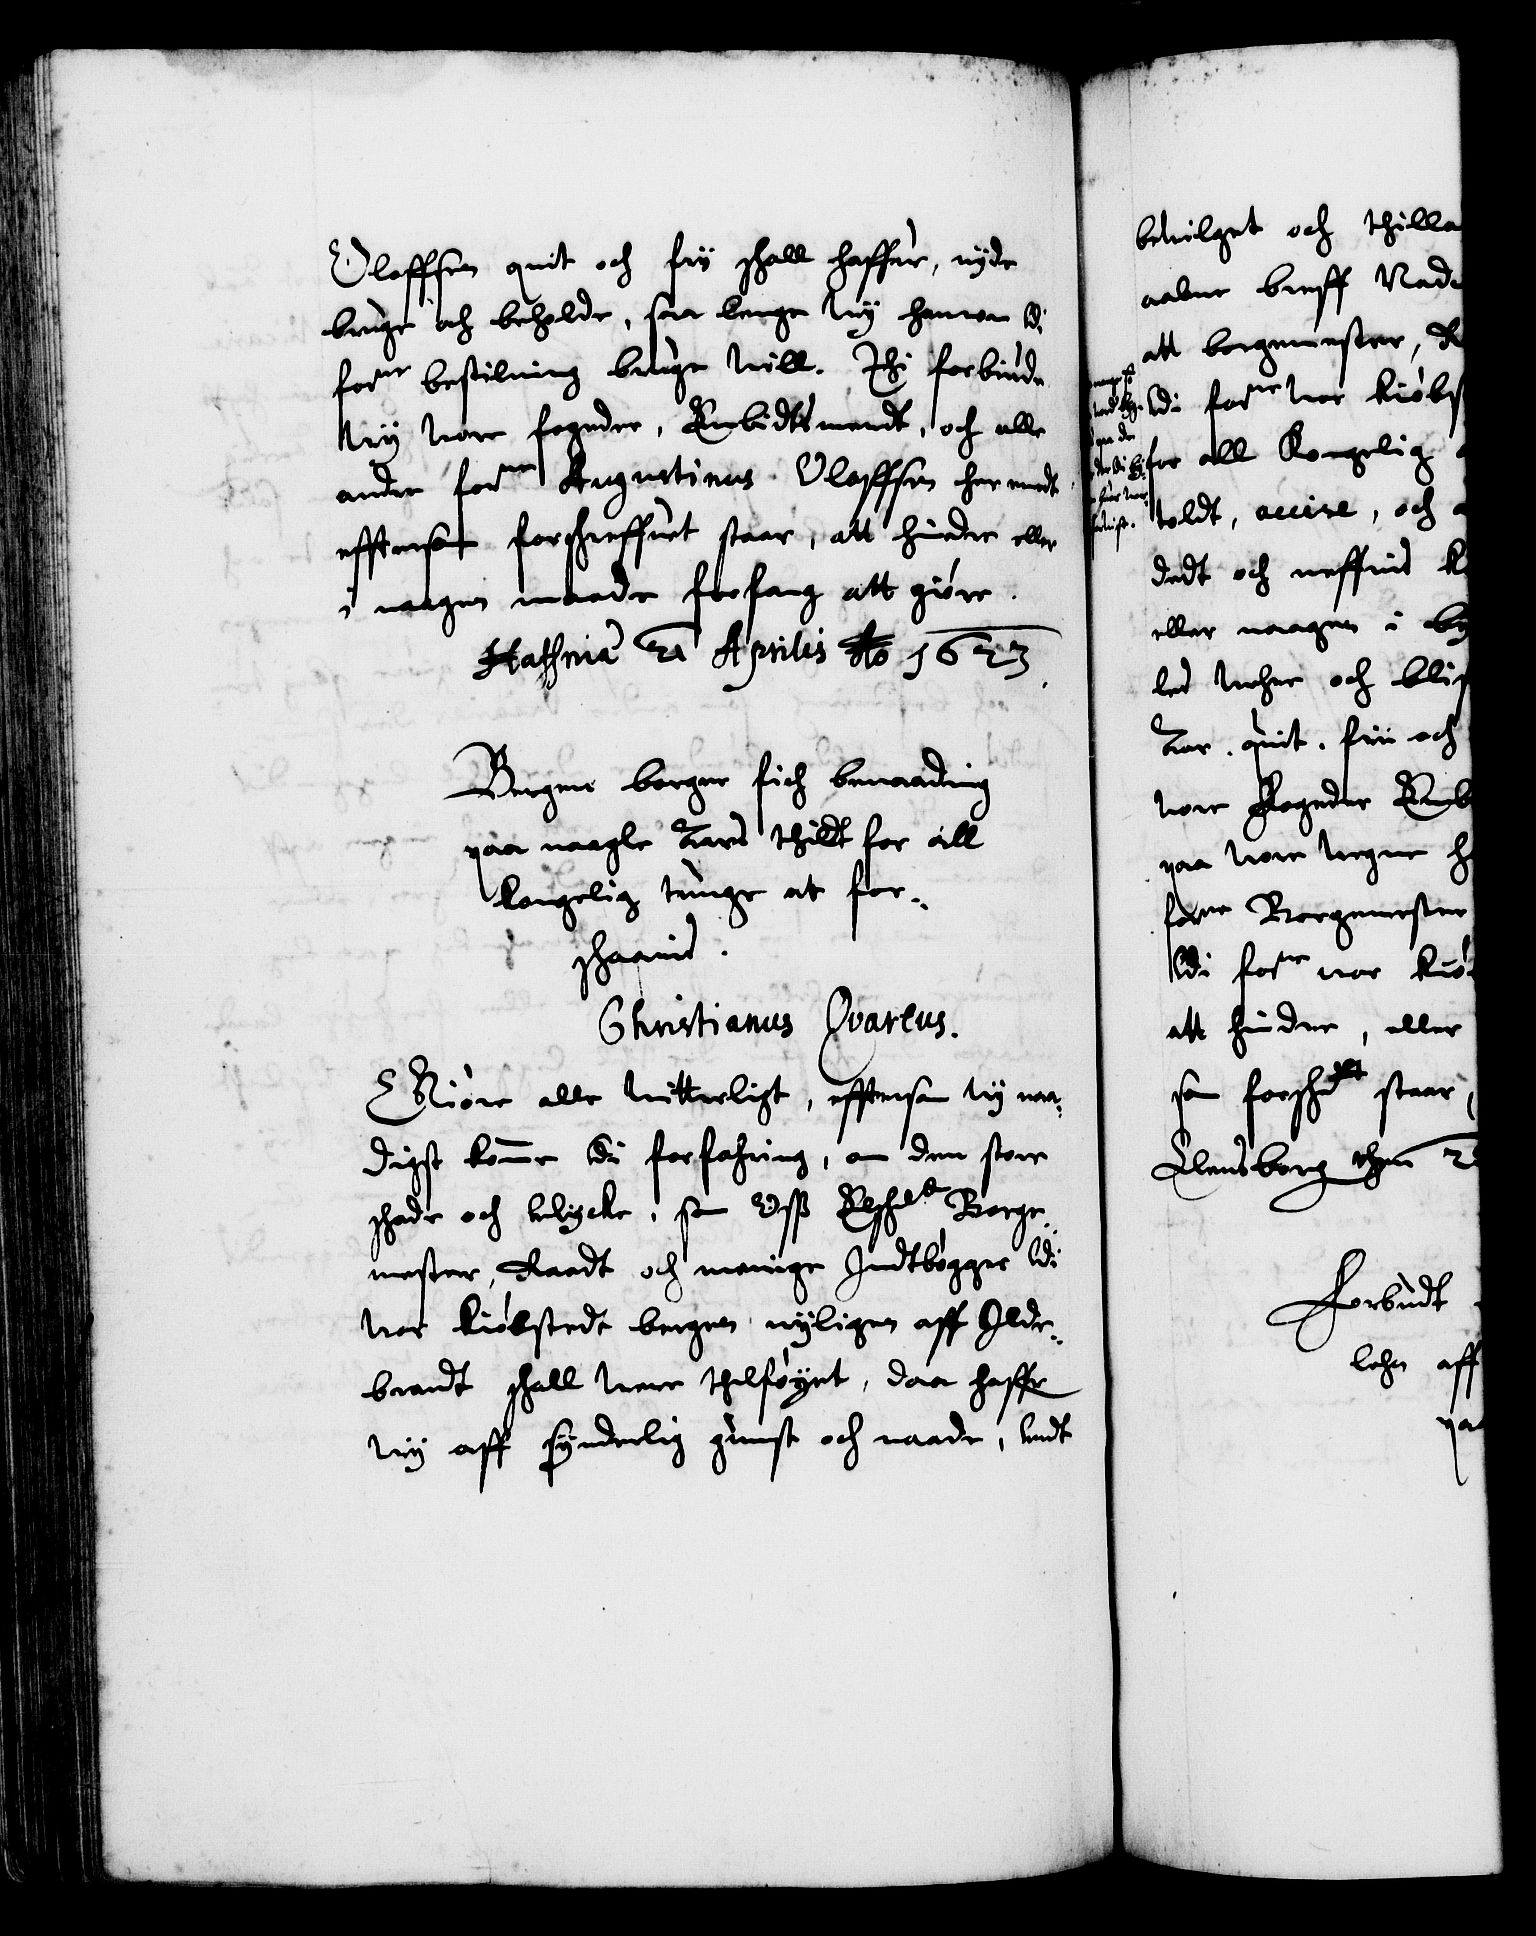 Oloffsen quit och frij schall haffue, nyde
bruge och beholde, saa lenge wij hannem udi
forne bestilning bruge will. Thi forbiude
wij wore fogeder, Embidtsmendt, och alle
andre forne Augustinus Oloffsen her emodt
efftersom forschreffuet staar, att hindre eller
i naagen maade forfang att giøre.
Haffniæ 21 Aprilis Ao 1623.
Bergens borger fich benaading
paa naagle Aars thidt for all
kongelig tunge at for-
schaanis.
Christianus Qvartus.
Giøre alle witterligt, efftersom wij naa-
digst komme udi forfahring, om den store
schade och ulycke, som Oss Elschelige Borge-
mester, Raadt och menige Indtbygger udi
wor kiøbstedt bergen nyligen aff Ilde-
brandt schall were thilføyet, daa haffe
wij aff synderlig gunst och naade, undt
beuilget och thilla
aabne breff Naad
att borgemester, R
udi forne wor kiøbs
for all Kongelig
toldt, accise, och
dedt och neffnis k
eller naagen i by
les wehre och blif
Aar. quit. frii och
wore Fogeder Emb
paa wore wegne h
forne Borgemester
udi forne wor kiø
att hindre, eller
som forschreffuit staar,
Elensborg then 2
Forbudt
lehn aff
paa